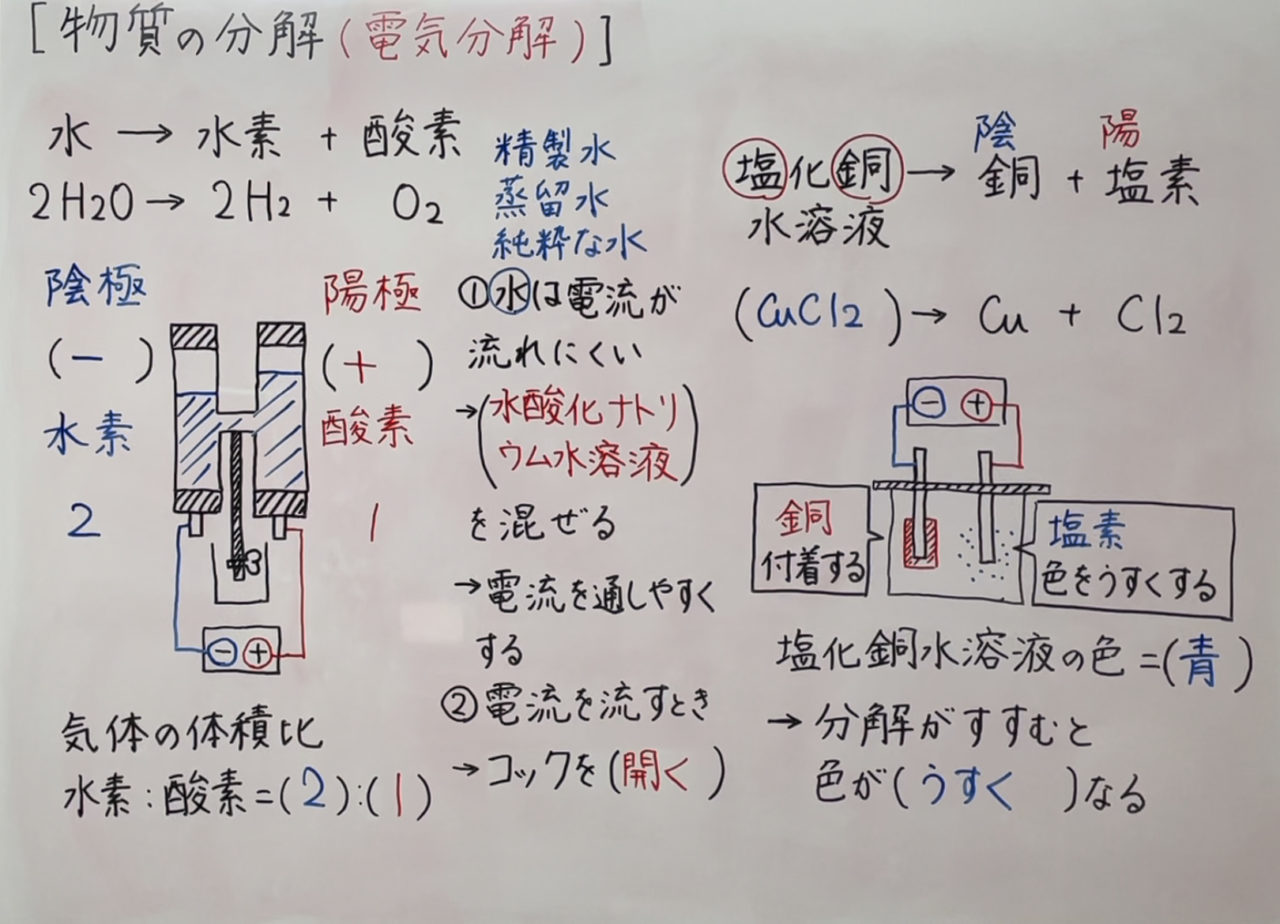 [物質の分解(電気分解)]
水 → 水素 + 酸素
2H2O → 2H2 + O2
精製水
蒸留水
純粋な水
陰極
(−)
水素
2
陽極
(+)
酸素
1
− +
気体の体積比
水素:酸素=(2):(1)
①水は電流が
流れにくい
→(水酸化ナトリ
ウム水溶液)
を混ぜる
→電流を通しやすく
する
②電流を流すとき
→コックを(開く)
陰 陽
塩化銅 → 銅 + 塩素
水溶液
(CuCl2) → Cu + Cl2
− +
銅
付着する
塩素
色をうすくする
塩化銅水溶液の色=(青)
→ 分解がすすむと
色が(うすく)なる